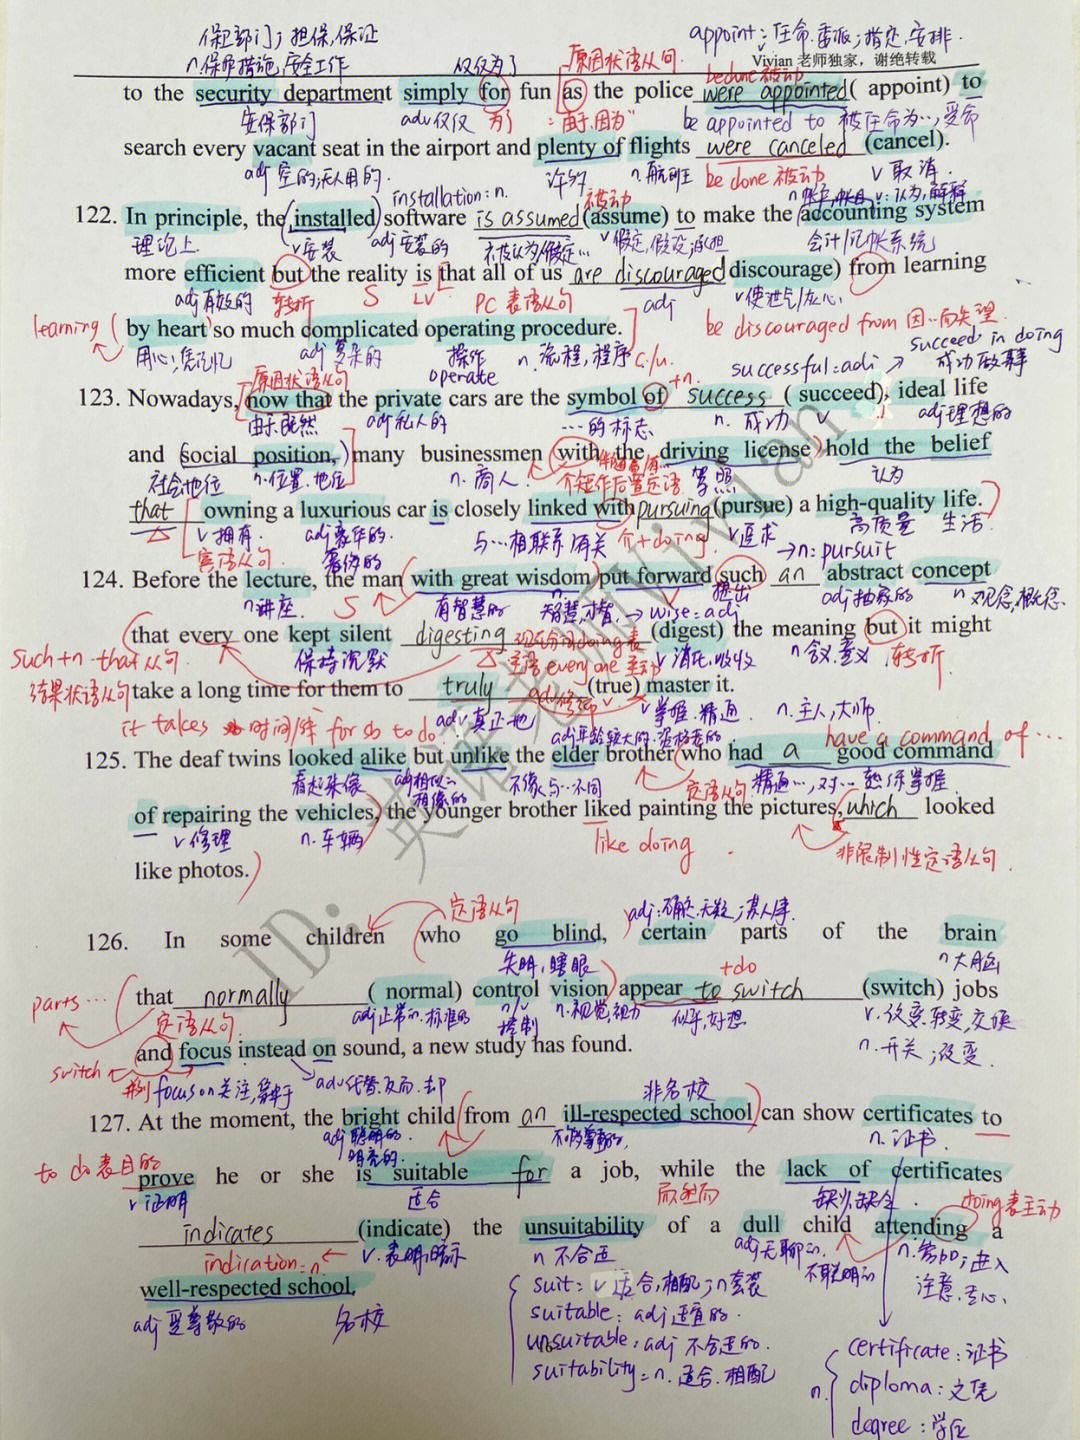 保卫部门；担保,保证
appoint：任命.委派；指定,安排.
n.保护措施,安全工作 仅仅为了 原因状语从句. Vivian 老师独家，谢绝转载
be done 被动
to the security department simply (for) fun as the police were appointed ( appoint) to
安保部门 adv仅仅 为了 =由于,因为" be appointed to 被任命为…,受命
search every vacant seat in the airport and plenty of flights were canceled (cancel).
adj 空的;无人用的. 许多 n.航班 be done 被动 v 取消.
installation：n. 被动 v：认为,解释
122. In principle, the installed software is assumed (assume) to make the accounting system
理论上 v安装 adj安装的 被认为/假定… v假定,假设;承担 会计/记帐系统
more efficient but the reality is that all of us are discouraged discourage) from learning
adj有效的 转折 S LV PC 表语从句 adj v使泄气/灰心
learning by heart so much complicated operating procedure. be discouraged from 因…而失望.
用心;凭记忆 adj 复杂的 操作 n.流程,程序 c./u. succeed in doing
operate successful：adj 成功做某事
原因状语从句 +n.
123. Nowadays, now that the private cars are the symbol of success ( succeed), ideal life
由于,既然 adj私人的 …的标志 n. 成功 v adj理想的
and social position, many businessmen with the driving license hold the belief
社会地位 n.位置,地位 n. 商人. 介短作后置定语 驾照 认为
that owning a luxurious car is closely linked with pursuing (pursue) a high-quality life.
v拥有. adj豪华的. 与…相联系/有关 介+doing. v追求 高质量 生活
宾语从句. 奢侈的 →n: pursuit
124. Before the lecture, the man with great wisdom put forward such an abstract concept
n讲座. S 有智慧的 智慧,才智. → wise=adj 提出 adj抽象的 n观念,概念.
that every one kept silent digesting (digest) the meaning but it might
such+n that从句. 保持沉默 主语every one主动 v消化,吸收 n含义.意义 转折
结果状语从句 take a long time for them to truly (true) master it.
it takes sb 时间/钱 for sb to do adv真正地 adv修饰v v掌握.精通. n.主人,大师.
adj年龄较大的. have a command of …
125. The deaf twins looked alike but unlike the elder brother who had a good command
看起来像 adj相似的 不像,与…不同 定语从句 精通…,对…熟练掌握
相像的
of repairing the vehicles, the younger brother liked painting the pictures, which looked
v 修理 n.车辆 like doing . 非限制性定语从句.
like photos.
定语从句
126. In some children who go blind, certain parts of the brain
失明,瞎眼 +do n大脑
parts … that normally ( normal) control vision appear to switch (switch) jobs
定语从句. adj正常的.标准的 n/v控制 n.视觉,视力 似乎,好想 v.改变.转变,交换
and focus instead on sound, a new study has found. n.开关；改变.
switch 并列 focus on 关注, adv代替.反而.却
非名校
127. At the moment, the bright child from an ill-respected school can show certificates to
adj聪明的. 明亮的. n.证书.
to do 表目的 prove he or she is suitable for a job, while the lack of certificates
v 证明 适合 而,然而 缺少,缺乏 . doing表主动
indicates (indicate) the unsuitability of a dull child attending a
indication=n v.表明;暗示 n 不合适 adj无聊的. 不聪明的 n.参加；进入
well-respected school. suit: v 适合,相配；n套装 注意.专心.
adj 受尊敬的 名校 suitable: adj 适宜的.
unsuitable: adj 不合适的. certificate：证书
suitability=n. 适合.相配 n. diploma：文凭
degree：学位
ID: 英语老师Vivian